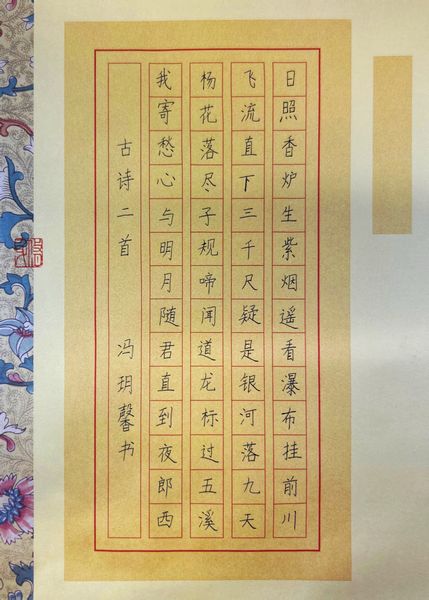 日照香炉生紫烟遥看瀑布挂前川
飞流直下三千尺疑是银河落九天
杨花落尽子规啼闻道龙标过五溪
我寄愁心与明月随君直到夜郎西
古诗二首 冯玥馨书